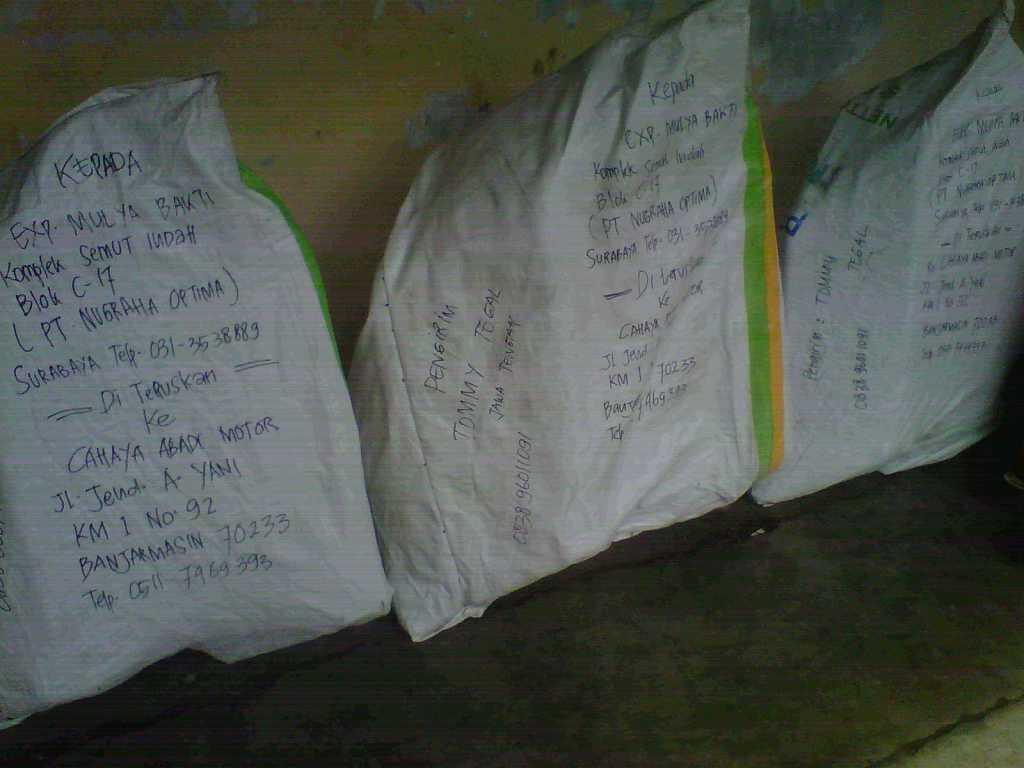 KEPADA
EXP. MULYA BAKTI
Komplek Semut Indah
Blok C-17
(PT. NUGRAHA OPTIMA)
SURABAYA Telp. 031-3538889
Di Teruskan
Ke
CAHAYA ABADI MOTOR
Jl. Jend. A. YANI
KM 1 No. 92
BANJARMASIN 70233
Telp. 0511 7969393
Kepada
EXP. MULYA BAKTI
Komplek Semut Indah
Blok C-17
(PT NUGRAHA OPTIMA)
SURABAYA Telp. 031-3538889
Ke
CAHAYA
Jl Jend
KM 1 70233
Telp
PENGIRIM
TOMMY TEGAL
JAWA TENGAH
0838 96011091
Kepada
EXP. MULYA
C-17
(PT NUGRAHA OPTIMA)
Surabaya Telp. 031
Di Teruskan
Ke CAHAYA ABADI MOTOR
Jl. Jend A. Yani
BANJARMASIN 70233
Pengirim : TOMMY
TEGAL
0838 96011091